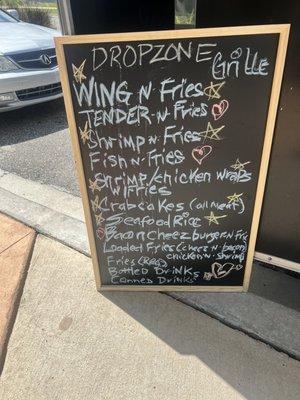 DROPZONE Grille
WING N Fries
TENDER-N-Fries
Shrimp-N-Fries
Fish-N-Fries
Shrimp/chicken wraps
w/Fries
Crabcakes (all meat)
Seafood Rice
Bacon Cheezburger-N-Fri
Loaded Fries (cheez-N-bacon)
chicken-N-shrimp
Fries (Reg)
Bottled Drinks
Canned Drinks